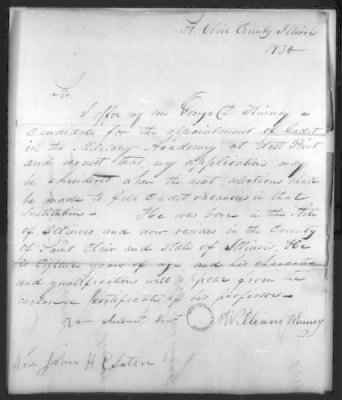 St Clair County Illinois
1830
Sir.
I offer my son George D. Kinney a
Candidate for the appointment of Cadet
in the Military Academy at West Point
and request that my application may
be considered when the next selections shall
be made to fill Cadet vacancies in that
Institution - He was born in the State
of Illinois and now resides in the County
of Saint Clair and State of Illinois. He
is Eighteen years of age, and his character
and qualifications will appear from the
enclosed Certificate of his professor
your obedient Servt
William Kinney
Hon John H Eaton